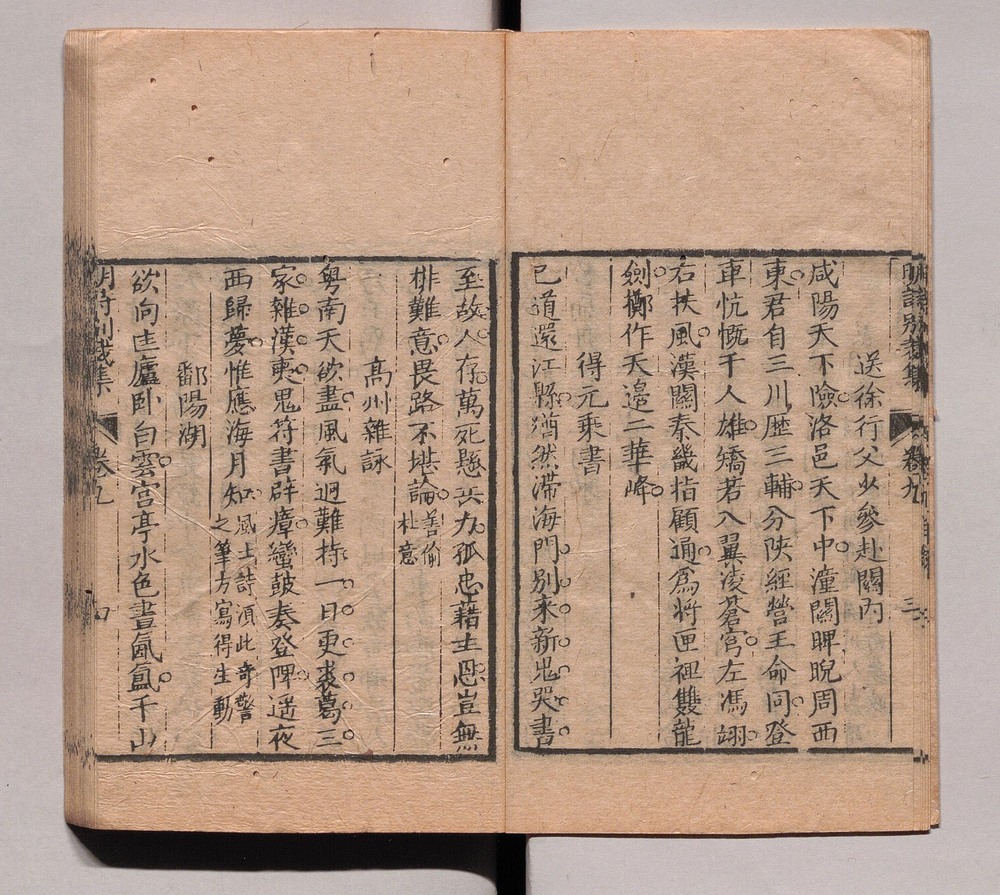 送徐行父少參赴關內
咸陽天下險洛邑天下中潼關睥睨周西
東君自三川歷三輔分陝經營王命同登
車忼慨千人雄矯若八翼凌蒼穹左馮翊
右扶風漢關秦畿指顧通爲將匣裡雙龍
劍擲作天邊二華峰
得元乘書
已道還江縣猶然滯海門別來新鬼哭書
至故人存萬死懸兵力孤忠藉主恩豈無
排難意畏路不堪論善偷
杜意
高州雜詠
粵南天欲盡風氣迥難持一日更裘葛三
家雜漢夷鬼符書辟瘴蠻鼓奏登陴遥夜
西歸夢惟應海月知風土詩須此奇警
之筆方寫得生動
鄱陽湖
欲向匡廬臥白雲宫亭水色晝氤氳千山
明詩別裁集
卷九